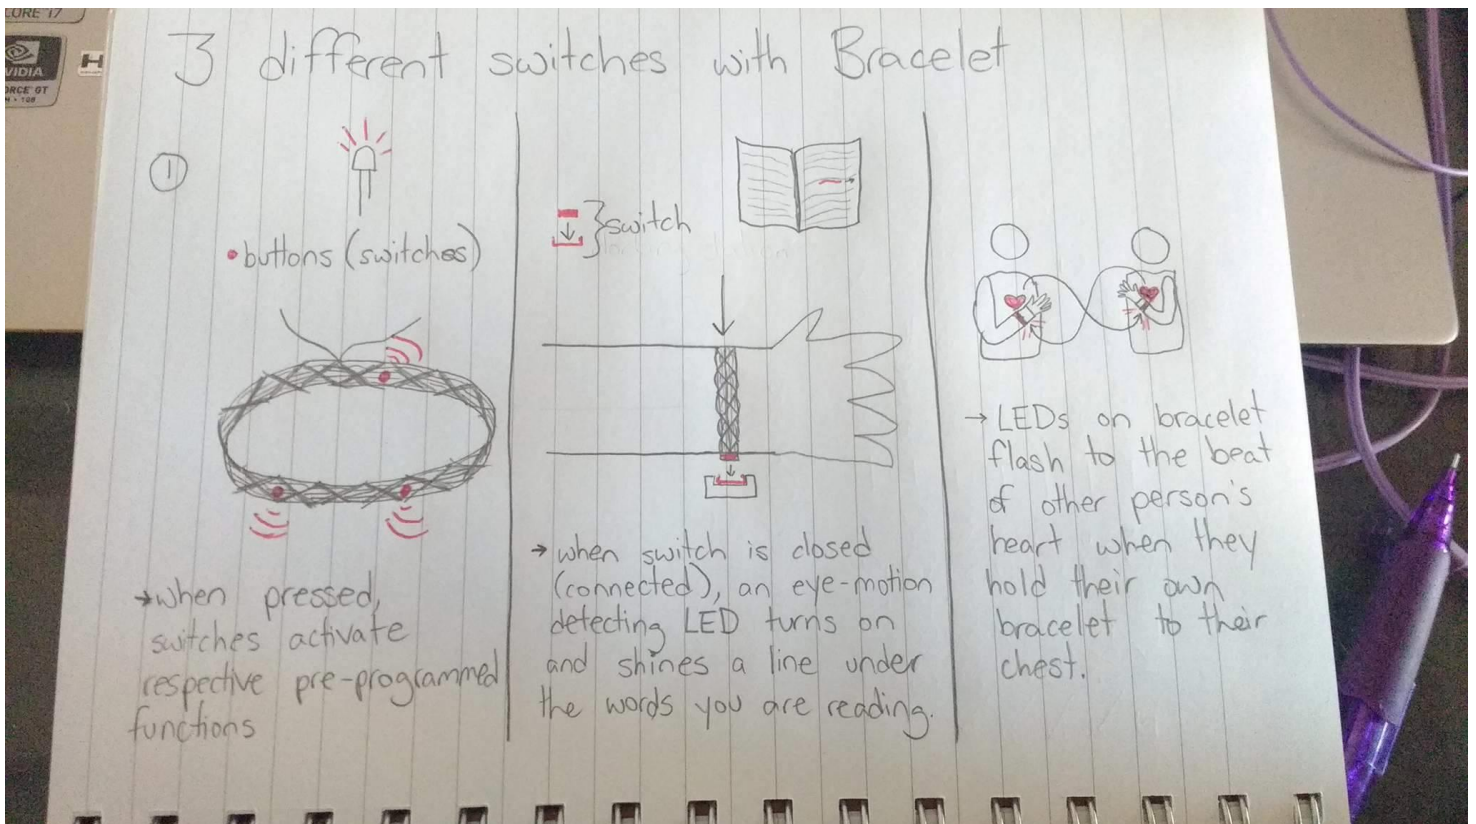 CORE i7
NVIDIA
H
3 different switches with Bracelet
①
•buttons (switches)
→when pressed,
switches activate
respective pre-programmed
functions
switch
→when switch is closed
(connected), an eye-motion
detecting LED turns on
and shines a line under
the words you are reading.
→ LEDs on bracelet
flash to the beat
of other person's
heart when they
hold their own
bracelet to their
chest.